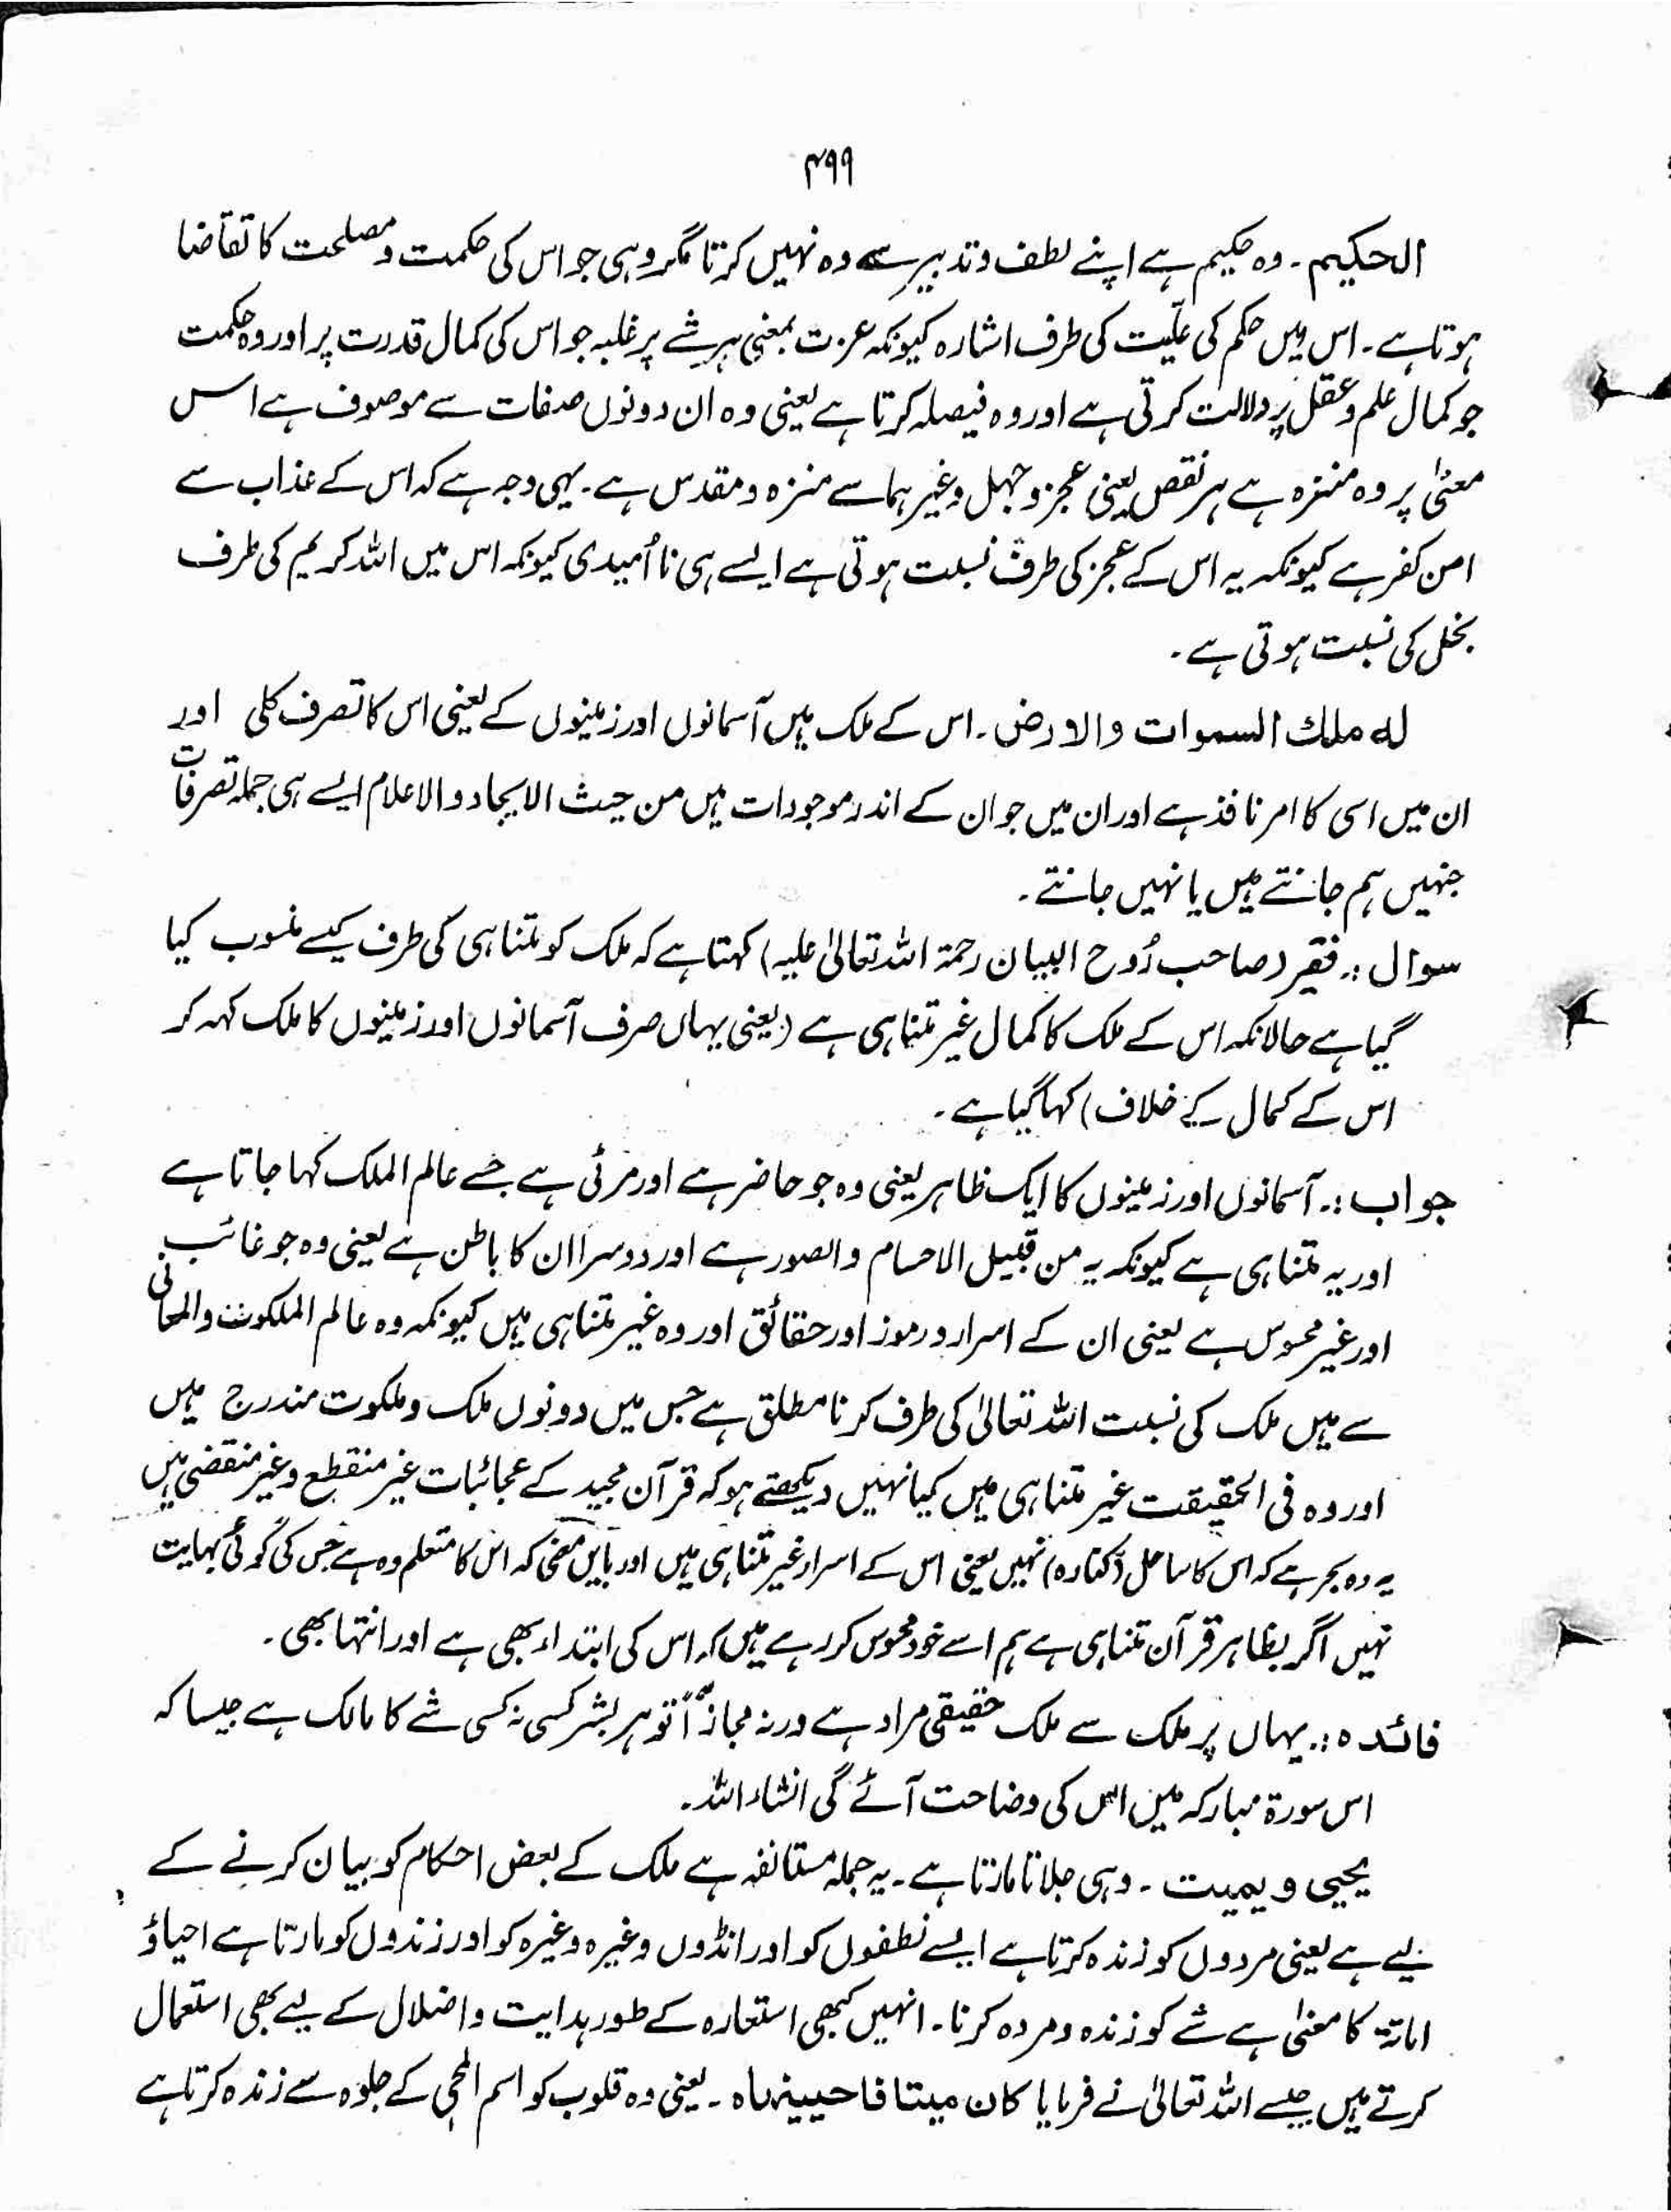 ۴۹۹
الحکیم ۔ وہ حکیم ہے اپنے لطف و تدبیر سے وہ نہیں کرتا مگر وہی جو اس کی حکمت و مصلحت کا تقاضا
ہوتا ہے ۔ اس میں حکم کی علّیت کی طرف اشارہ کیونکہ عزت بمعنی ہر شے پر غلبہ جو اس کی کمال قدرت پر اور وہ حکمت
جو کمال علم و عقل پر دلالت کرتی ہے اور وہ فیصلہ کرتا ہے یعنی وہ ان دونوں صفات سے موصوف ہے اس
معنیٰ پر وہ منزہ ہے ہر نقص یعنی عجز و جہل وغیرہما سے منزہ و مقدس ہے ۔ یہی وجہ ہے کہ اس کے عذاب سے
امن کفر ہے کیونکہ یہ اس کے عجز کی طرف نسبت ہوتی ہے ایسے ہی نا اُمیدی کیونکہ اس میں اللہ کریم کی طرف
بخل کی نسبت ہوتی ہے ۔
لہ ملك السموات والارض ۔ اس کے ملک ہیں آسمانوں اور زمینوں کے یعنی اس کا تصرف کلی اور
ان میں اسی کا امر نافذ ہے اور ان میں جو ان کے اندر موجودات ہیں من حیث الایجاد والاعلام ایسے ہی جملہ تصرفات
جنہیں ہم جانتے ہیں یا نہیں جانتے ۔
سوال :۔ فقیر (صاحب رُوح البیان رحمۃ اللہ تعالیٰ علیہ) کہتا ہے کہ ملک کو متناہی کی طرف کیسے منسوب کیا
گیا ہے حالانکہ اس کے ملک کا کمال غیر متناہی ہے (یعنی یہاں صرف آسمانوں اور زمینوں کا ملک کہہ کر
اس کے کمال کے خلاف) کہا گیا ہے ۔
جواب :۔ آسمانوں اور زمینوں کا ایک ظاہر یعنی وہ جو حاضر ہے اور مرئی ہے جسے عالم الملک کہا جاتا ہے
اور یہ متناہی ہے کیونکہ یہ من قبیل الاحسام والصور ہے اور دوسرا ان کا باطن ہے یعنی وہ جو غائب
اور غیر محسوس ہے یعنی ان کے اسرار و رموز اور حقائق اور وہ غیر متناہی ہیں کیونکہ وہ عالم الملکوت والمعانی
سے ہیں ملک کی نسبت اللہ تعالیٰ کی طرف کرنا مطلق ہے جس میں دونوں ملک و ملکوت مندرج ہیں
اور وہ فی الحقیقت غیر متناہی ہیں کیا نہیں دیکھتے ہو کہ قرآن مجید کے عجائبات غیر منقطع و غیر منقضی ہیں
یہ وہ بحر ہے کہ اس کا ساحل (کنارہ) نہیں یعنی اس کے اسرار غیر متناہی ہیں اور بایں معنی کہ اس کا متعلم وہ ہے جس کی کوئی نہایت
نہیں اگر بظاہر قرآن متناہی ہے ہم اسے خود محسوس کر رہے ہیں کہ اس کی ابتداء بھی ہے اور انتہا بھی ۔
فائدہ :۔ یہاں پر ملک سے ملک حقیقی مراد ہے ورنہ مجازاً تو ہر بشر کسی نہ کسی شے کا مالک ہے جیسا کہ
اس سورۃ مبارکہ میں اس کی وضاحت آئے گی انشاء اللہ ۔
یحیی و یمیت ۔ وہی جلاتا مارتا ہے ۔ یہ جملہ مستانفہ ہے ملک کے بعض احکام کو بیان کرنے کے
لیے ہے یعنی مردوں کو زندہ کرتا ہے ایسے نطفوں کو اور انڈوں وغیرہ وغیرہ کو اور زندوں کو مارتا ہے احیاؤ
اماتۃ کا معنیٰ ہے شے کو زندہ و مردہ کرنا ۔ انہیں کبھی استعارہ کے طور ہدایت و اضلال کے لیے بھی استعمال
کرتے ہیں جیسے اللہ تعالیٰ نے فرمایا کان میتا فاحیینہاہ ۔ یعنی وہ قلوب کو اسم المحی کے جلوہ سے زندہ کرتا ہے